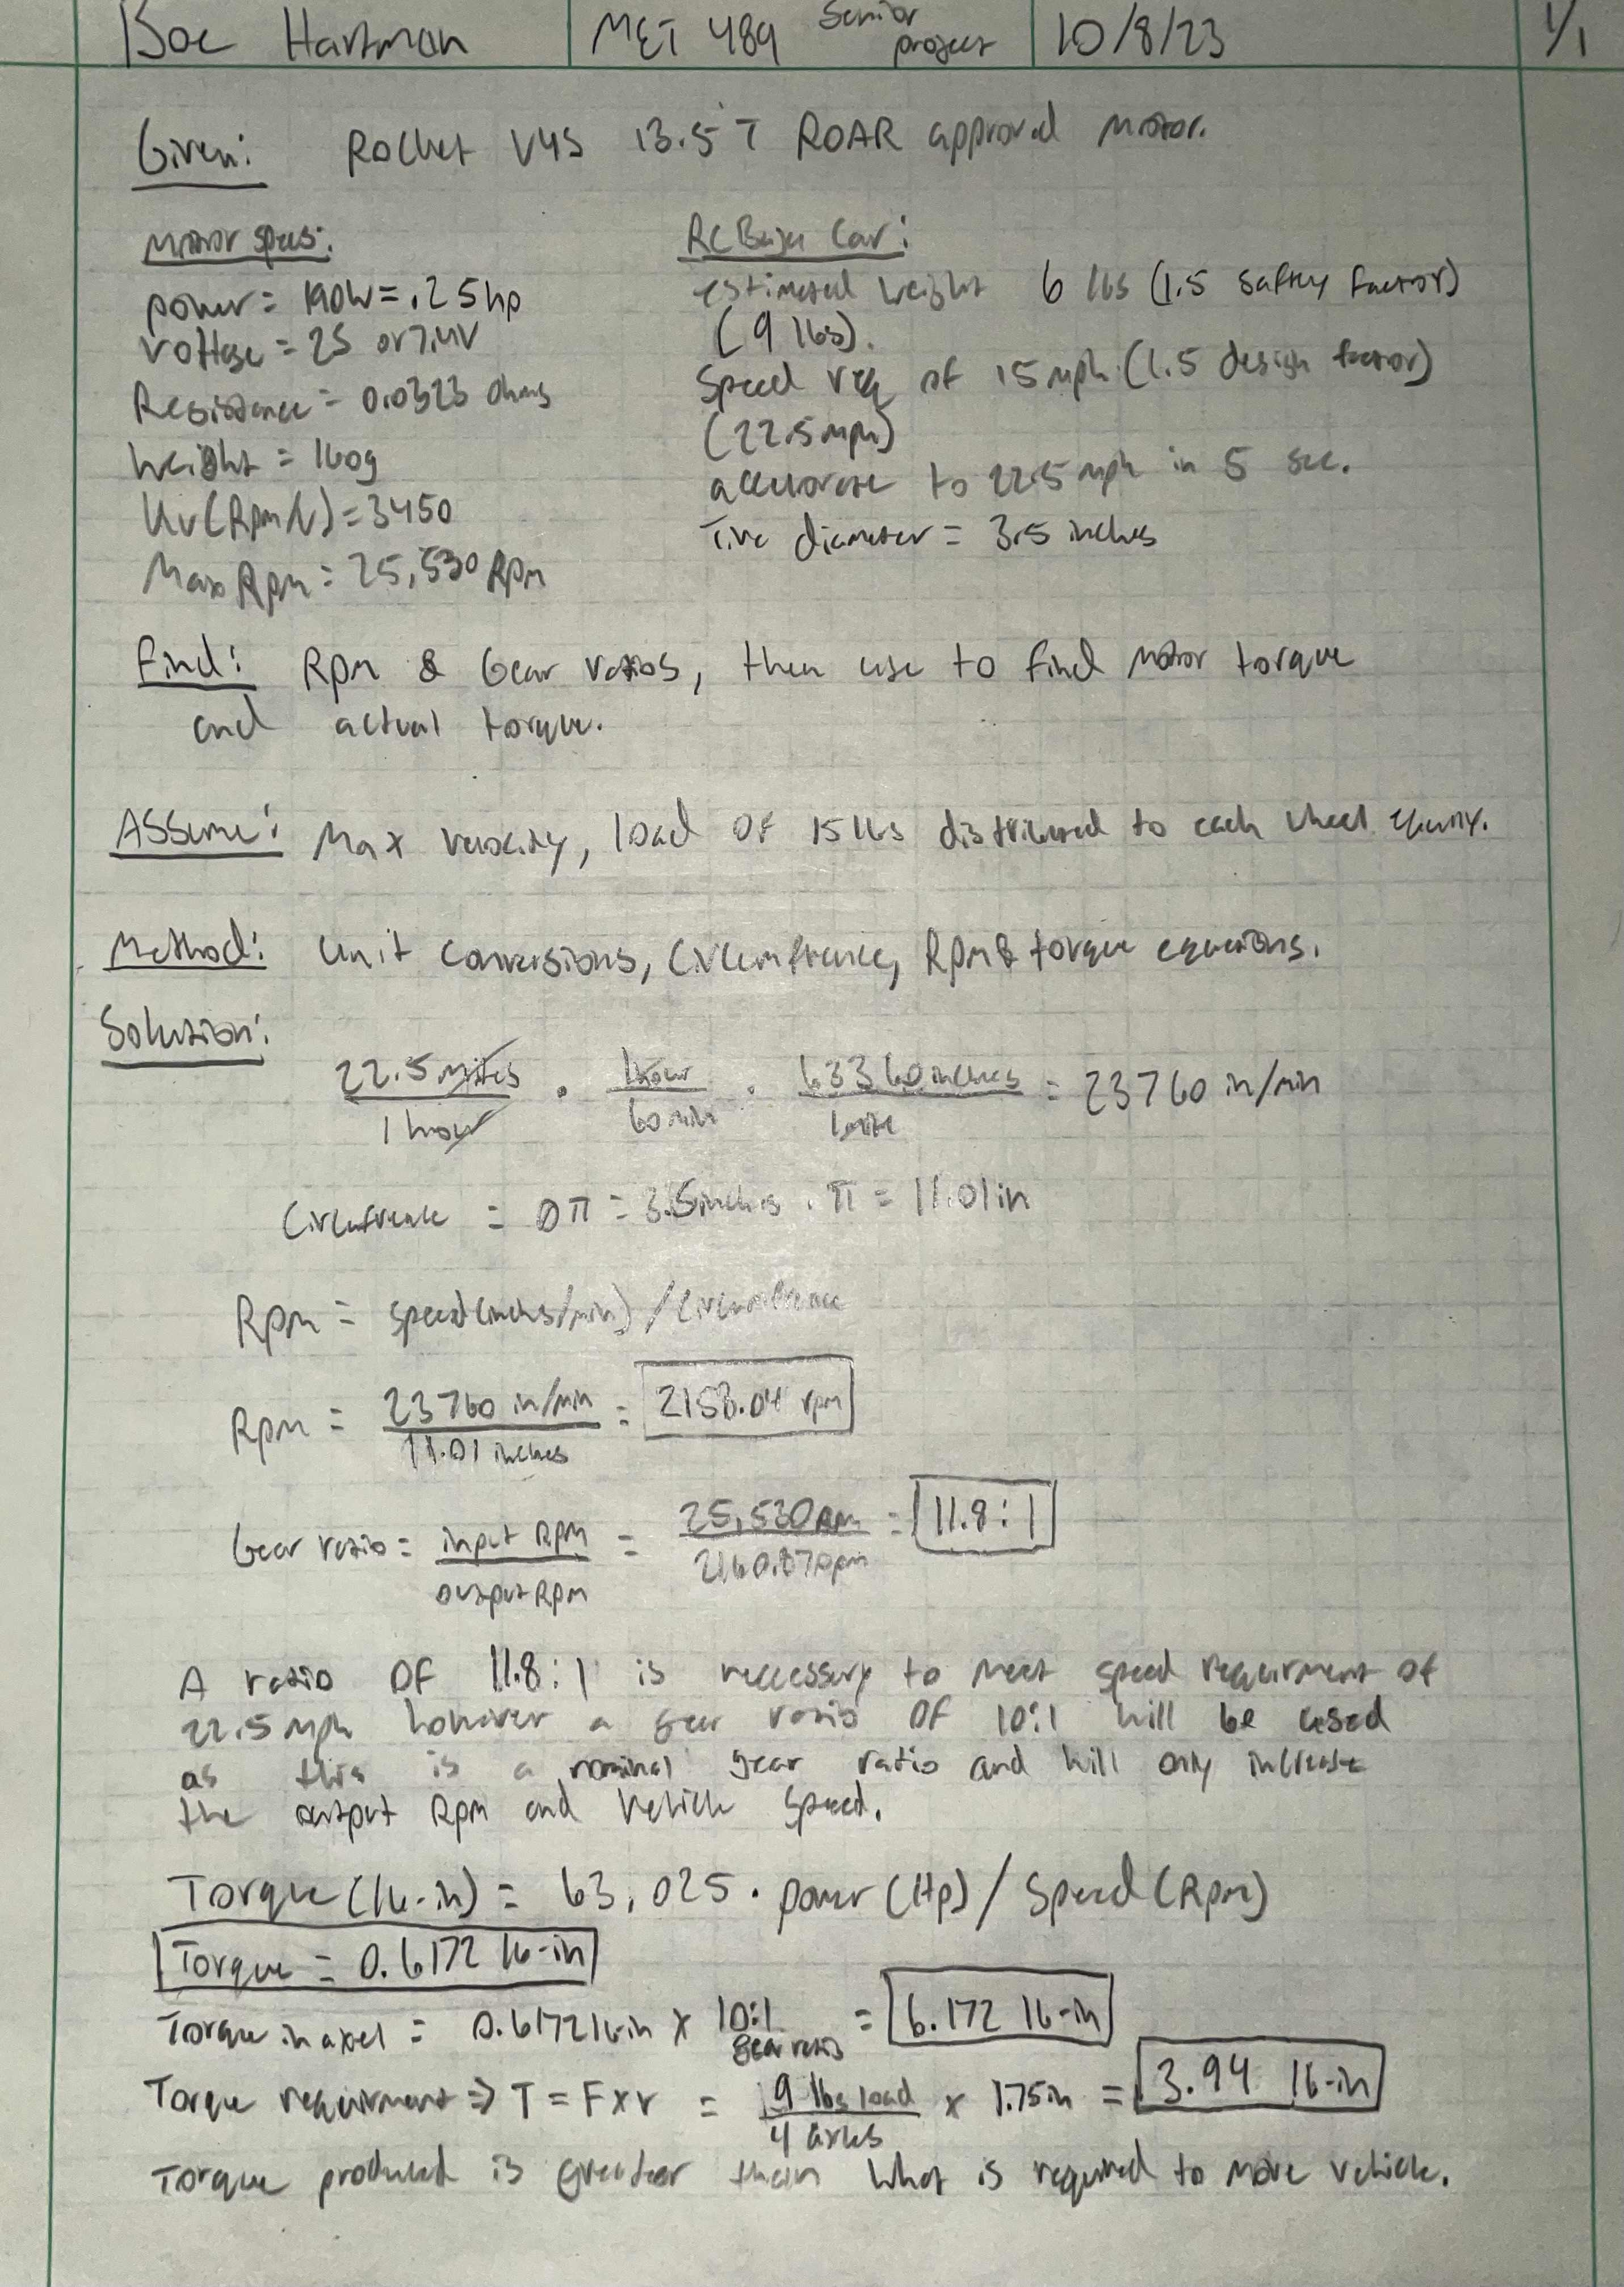 Boe Hartman | MET 489 Senior project | 10/8/23 | 1/1
Given: Rocket V4S 13.5T ROAR approved motor.
Motor specs:
power = 190W = .25hp
voltage = 2S or 7.4V
Resistance = 0.0323 ohms
Weight = 160g
Kv(Rpm/V) = 3450
Max Rpm = 25,530 Rpm
RC Baja Car:
estimated weight 6 lbs (1.5 saftey factor)
(9 lbs).
Speed req of 15 mph (1.5 design factor)
(22.5mph)
accelorate to 22.5mph in 5 sec.
Tire diameter = 3.5 inches
Find: Rpm & Gear ratios, then use to find motor torque
and actual torque.
Assume: Max velocity, load of 15 lbs distributed to each wheel equally.
Method: Unit conversions, Circumfrence, Rpm & torque equations.
Solution:
22.5 miles / 1 hour · 1 hour / 60 min · 63360 inches / 1 mile = 23760 in/min
Circumfrence = Dπ = 3.5 inches · π = 11.01 in
Rpm = speed (inches/min) / Circumfrence
Rpm = 23760 in/min / 11.01 inches = 2158.04 rpm
Gear ratio = input RPM / output RPM = 25,530 RPM / 2160.87 Rpm = 11.8:1
A ratio of 11.8:1 is neccessary to meet speed requirment of
22.5 mph however a gear ratio of 10:1 will be used
as this is a nominal gear ratio and will only increase
the output Rpm and vehicle speed.
Torque (lb-in) = 63,025 · power (Hp) / Speed (Rpm)
Torque = 0.6172 lb-in
Torque in axel = 0.6172 lb-in x 10:1 gear ratio = 6.172 lb-in
Torque requirment => T = F x r = 9 lbs load / 4 axles x 1.75in = 3.94 lb-in
Torque produced is greater than what is required to move vehicle.